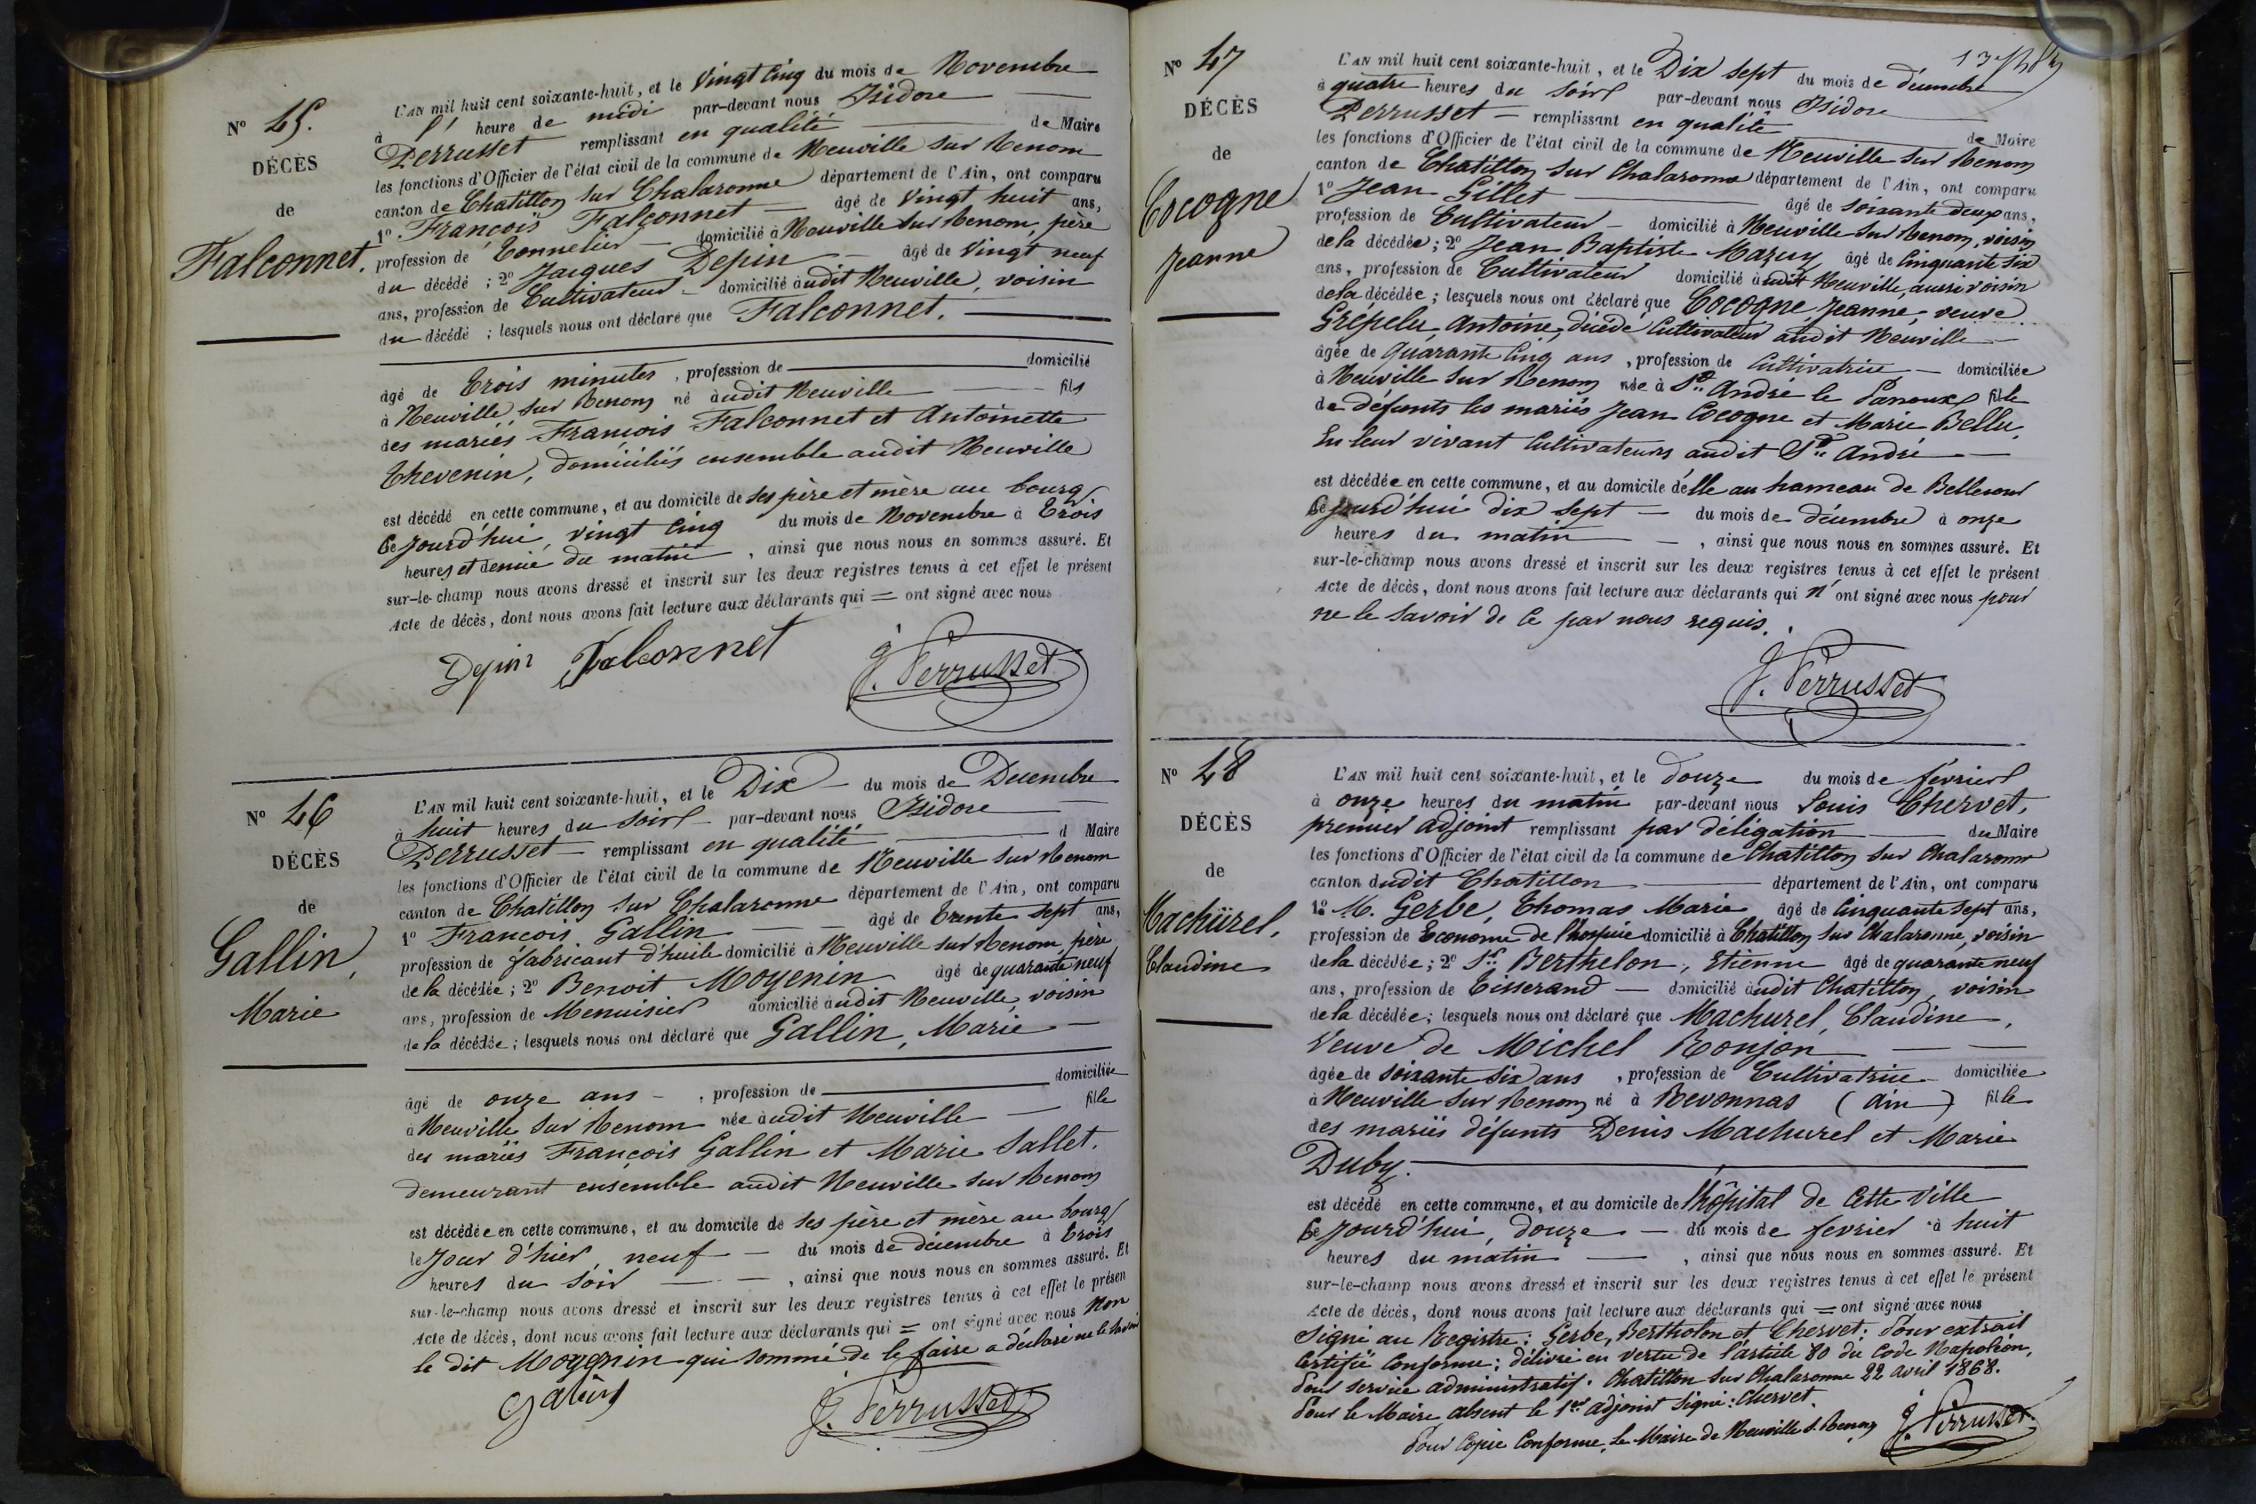 N° 45.
DÉCÈS
de
Falconnet.
L'AN mil huit cent soixante-huit, et le Vingt Cinq du mois de Novembre
à l' heure de midi par-devant nous Isidore
Perrusset remplissant en qualité de Maire
les fonctions d'Officier de l'état civil de la commune de Neuville sur Renom
canton de Chatillon sur Chalaronne département de l'Ain, ont comparu
1° François Falconnet âgé de Vingt huit ans,
profession de Tonnelier domicilié à Neuville sur Renom, père
du décédé ; 2° Jacques Depin âgé de Vingt neuf
ans, profession de Cultivateur domicilié audit Neuville, voisin
du décédé ; lesquels nous ont déclaré que Falconnet.
âgé de Trois minutes, profession de domicilié
à Neuville sur Renom né audit Neuville fils
des mariés François Falconnet et Antoinette
Thevenin, domiciliés ensemble audit Neuville
est décédé en cette commune, et au domicile de ses père et mère au bourg
Ce jourd'hui, vingt cinq du mois de Novembre à Trois
heures et demie du matin, ainsi que nous nous en sommes assuré. Et
sur-le-champ nous avons dressé et inscrit sur les deux registres tenus à cet effet le présent
Acte de décès, dont nous avons fait lecture aux déclarants qui = ont signé avec nous
Depin Falconnet J. Perrusset
N° 46
DÉCÈS
de
Gallin,
Marie
L'AN mil huit cent soixante-huit, et le Dix du mois de Décembre
à huit heures du soir par-devant nous Isidore
Perrusset remplissant en qualité d Maire
les fonctions d'Officier de l'état civil de la commune de Neuville sur Renom
canton de Chatillon sur Chalaronne département de l'Ain, ont comparu
1° François Gallin âgé de trente sept ans,
profession de fabricant d'huile domicilié à Neuville sur Renom, père
de la décédée ; 2° Benoit Moyenin âgé de quarante neuf
ans, profession de Menuisier domicilié audit Neuville, voisin
de la décédée ; lesquels nous ont déclaré que Gallin, Marie
âgé de onze ans, profession de domiciliée
à Neuville sur Renom née audit Neuville fille
des mariés François Gallin et Marie Sallet.
demeurant ensemble audit Neuville sur Renom
est décédée en cette commune, et au domicile de ses père et mère au bourg
le jour d'hier neuf du mois de décembre à Trois
heures du soir, ainsi que nous nous en sommes assuré. Et
sur-le-champ nous avons dressé et inscrit sur les deux registres tenus à cet effet le présen
Acte de décès, dont nous avons fait lecture aux déclarants qui = ont signé avec nous Non
le dit Moyenin qui sommé de le faire a déclaré ne le savoir
Gallin J. Perrusset
N° 47
DÉCÈS
de
Cocogne
Jeanne
L'AN mil huit cent soixante-huit, et le Dix sept du mois de décembre
à quatre heures du soir par-devant nous Isidore
Perrusset remplissant en qualité de Maire
les fonctions d'Officier de l'état civil de la commune de Neuville sur Renom
canton de Chatillon sur Chalaronne département de l'Ain, ont comparu
1° Jean Gillet âgé de soixante deux ans,
profession de Cultivateur domicilié à Neuville sur Renom, voisin
de la décédée ; 2° Jean Baptiste Mazuy âgé de Cinquante six
ans, profession de Cultivateur domicilié audit Neuville, aussi voisin
de la décédée ; lesquels nous ont déclaré que Cocogne Jeanne, veuve
Grépelu, Antoine, décédé Cultivateur audit Neuville
âgée de Quarante Cinq ans, profession de Cultivatrice domiciliée
à Neuville sur Renom née à St. André le Panoux fille
de défunts les mariés Jean Cocogne et Marie Bellu,
en leur vivant Cultivateurs audit St. André
est décédée en cette commune, et au domicile d'elle au hameau de Bellecour
Ce jourd'hui dix sept du mois de décembre à onze
heures du matin, ainsi que nous nous en sommes assuré. Et
sur-le-champ nous avons dressé et inscrit sur les deux registres tenus à cet effet le présent
Acte de décès, dont nous avons fait lecture aux déclarants qui n'ont signé avec nous pour
ne le savoir de ce par nous requis.
J. Perrusset
N° 48
DÉCÈS
de
Machurel,
Claudine
L'AN mil huit cent soixante-huit, et le douze du mois de février
à onze heures du matin par-devant nous Louis Chervet,
premier adjoint remplissant par délégation du Maire
les fonctions d'Officier de l'état civil de la commune de Chatillon sur Chalaronne
canton dudit Chatillon département de l'Ain, ont comparu
1° M. Gerbe, Thomas Marie âgé de Cinquante sept ans,
profession de Econome de l'hospice domicilié à Chatillon sur Chalaronne, voisin
de la décédée ; 2° Sr. Berthelon, Etienne âgé de quarante neuf
ans, profession de Tisserand domicilié audit Chatillon, voisin
de la décédée ; lesquels nous ont déclaré que Machurel, Claudine,
Veuve de Michel Ronjon
âgée de soixante six ans, profession de Cultivatrice domiciliée
à Neuville sur Renom né à Revonnas (Ain) fille
des mariés défunts Denis Machurel et Marie
Duby.
est décédé en cette commune, et au domicile de l'hôpital de cette ville
Ce jourd'hui, douze du mois de février à huit
heures du matin, ainsi que nous nous en sommes assuré. Et
sur-le-champ nous avons dressé et inscrit sur les deux registres tenus à cet effet le présent
Acte de décès, dont nous avons fait lecture aux déclarants qui = ont signé avec nous
Signé au Registre : Gerbe, Bertholon et Chervet : Pour extrait
Certifié Conforme ; délivré en vertu de l'article 80 du Code Napoléon,
Pour service administratif. Chatillon sur Chalaronne 22 avril 1868.
Pour le Maire absent le 1er adjoint Signé : Chervet.
Pour Copie Conforme, Le Maire de Neuville s. Renom J. Perrusset